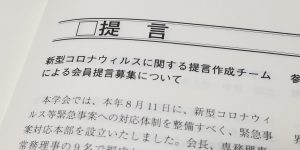 □提 言
新型コロナウィルスに関する提言作成チーム
による会員提言募集について
本学会では、本年8月11日に、新型コロナウ
ィルス等緊急事案への対応体制を整備すべく、緊急事
案対応本部を設立いたしました。会長、専務理事
常務理事の9名で
参